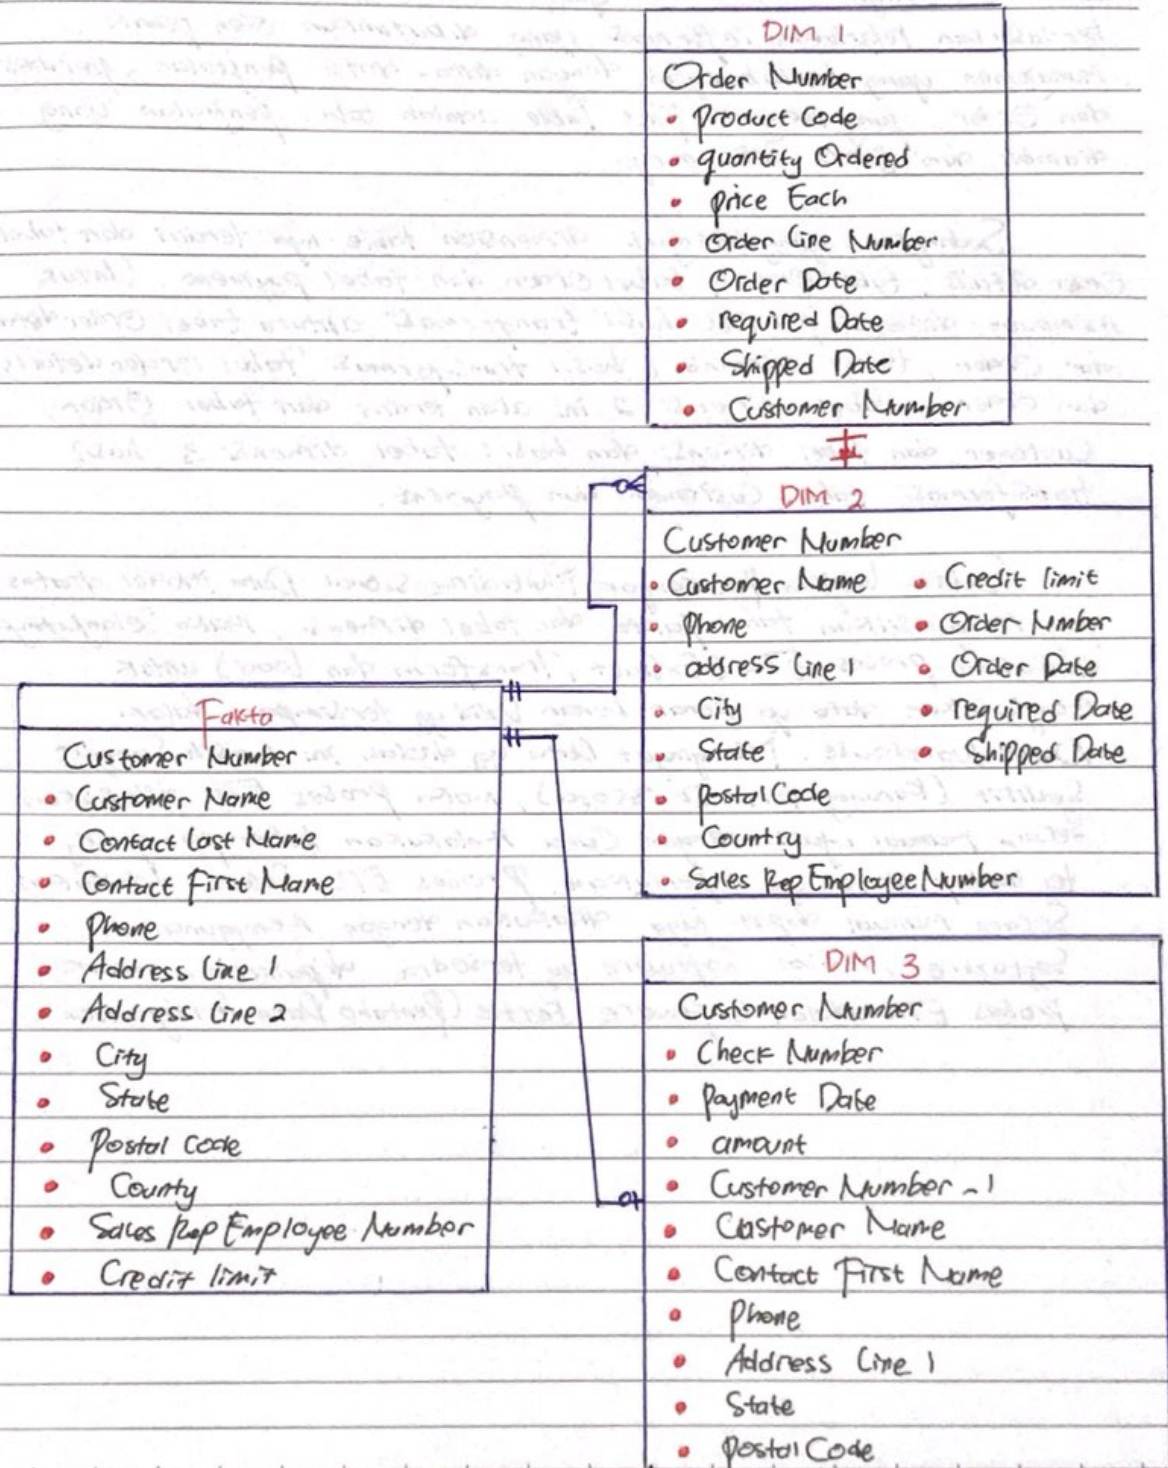 DIM 1
Order Number
• Product Code
• quantity Ordered
• price Each
• Order Line Number
• Order Date
• required Date
• Shipped Date
• Customer Number
DIM 2
Customer Number
• Customer Name • Credit limit
• Phone • Order Number
• address Line 1 • Order Date
• City • required Date
• State • Shipped Date
• Postal Code
• Country
• Sales Rep Employee Number
Fakta
Customer Number
• Customer Name
• Contact Last Name
• Contact First Name
• Phone
• Address Line 1
• Address Line 2
• City
• State
• Postal Code
• County
• Sales Rep Employee Number
• Credit limit
DIM 3
Customer Number
• Check Number
• Payment Date
• amount
• Customer Number - 1
• Customer Name
• Contact First Name
• Phone
• Address Line 1
• State
• Postal Code